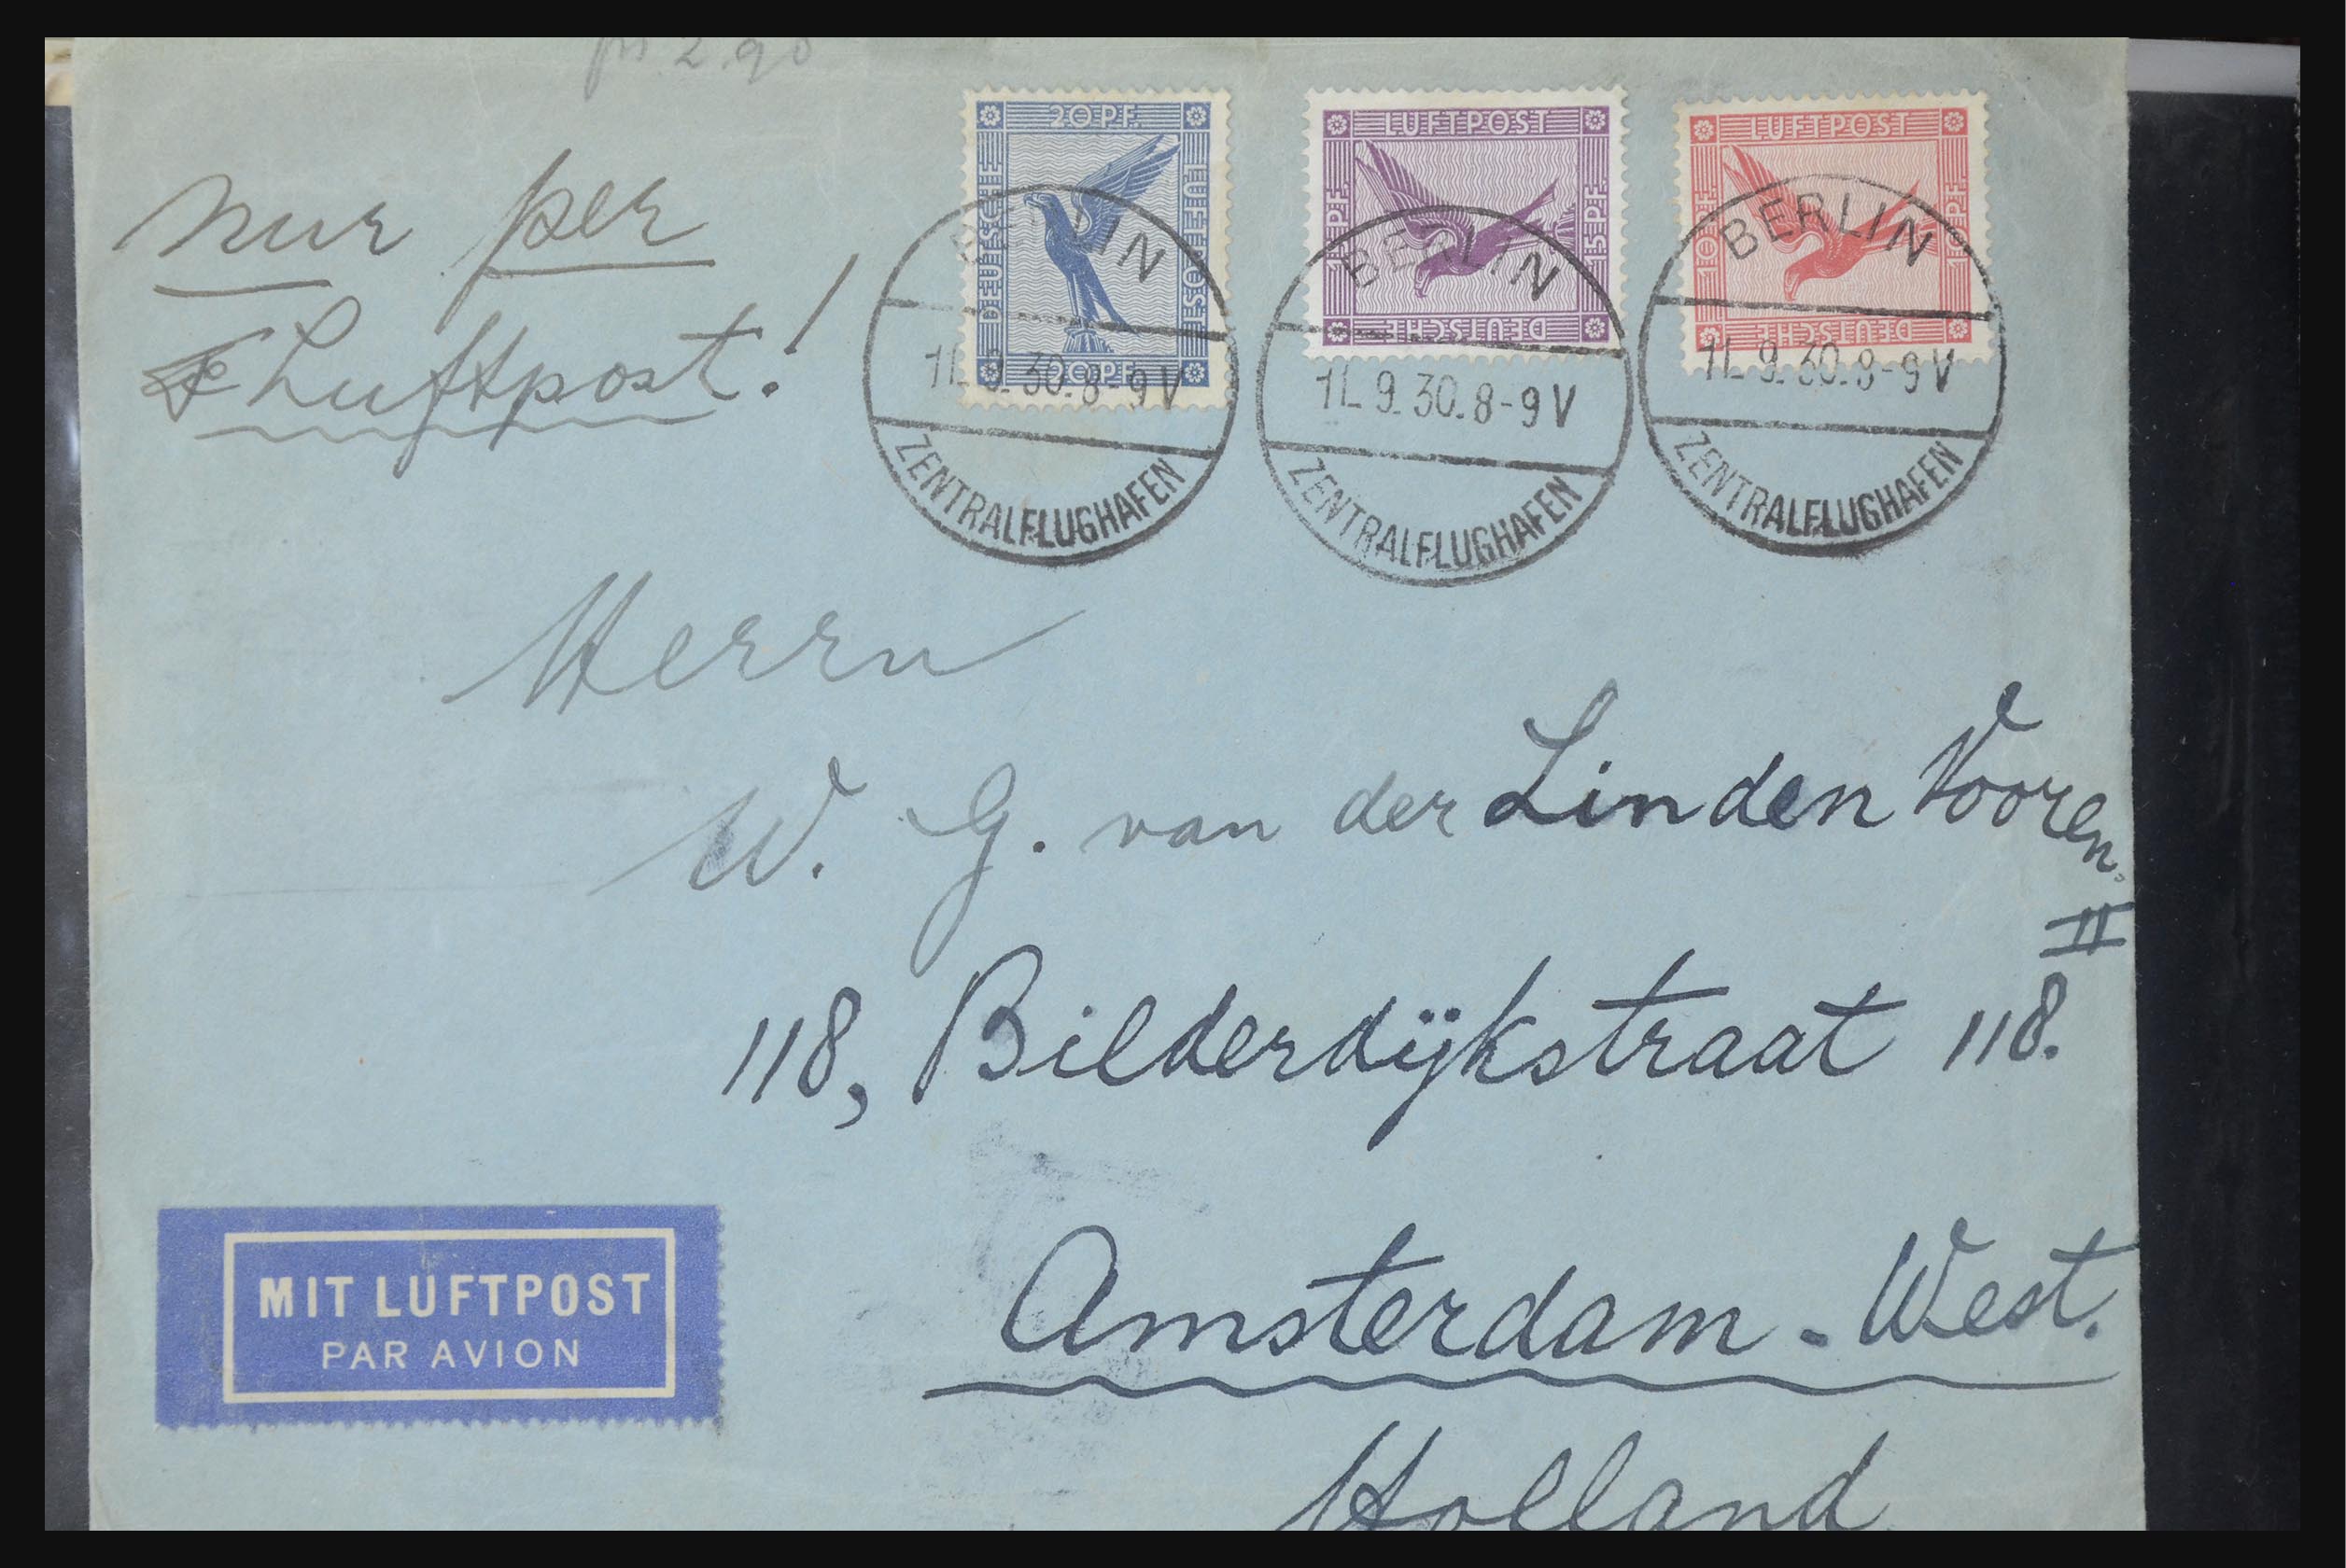 2.90
nur per
Luftpost!
20 PF.
DEUTSCHE
LUFTPOST
20 PF.
LUFTPOST
15 PF.
15 PF.
DEUTSCHE
LUFTPOST
10 PF.
10 PF.
DEUTSCHE
BERLIN
11.9.30.8-9V
ZENTRALFLUGHAFEN
BERLIN
11.9.30.8-9V
ZENTRALFLUGHAFEN
BERLIN
11.9.30.8-9V
ZENTRALFLUGHAFEN
Herrn
W. G. van der Linden Vooren.
II
118, Bilderdijkstraat 118.
Amsterdam-West.
Holland
MIT LUFTPOST
PAR AVION